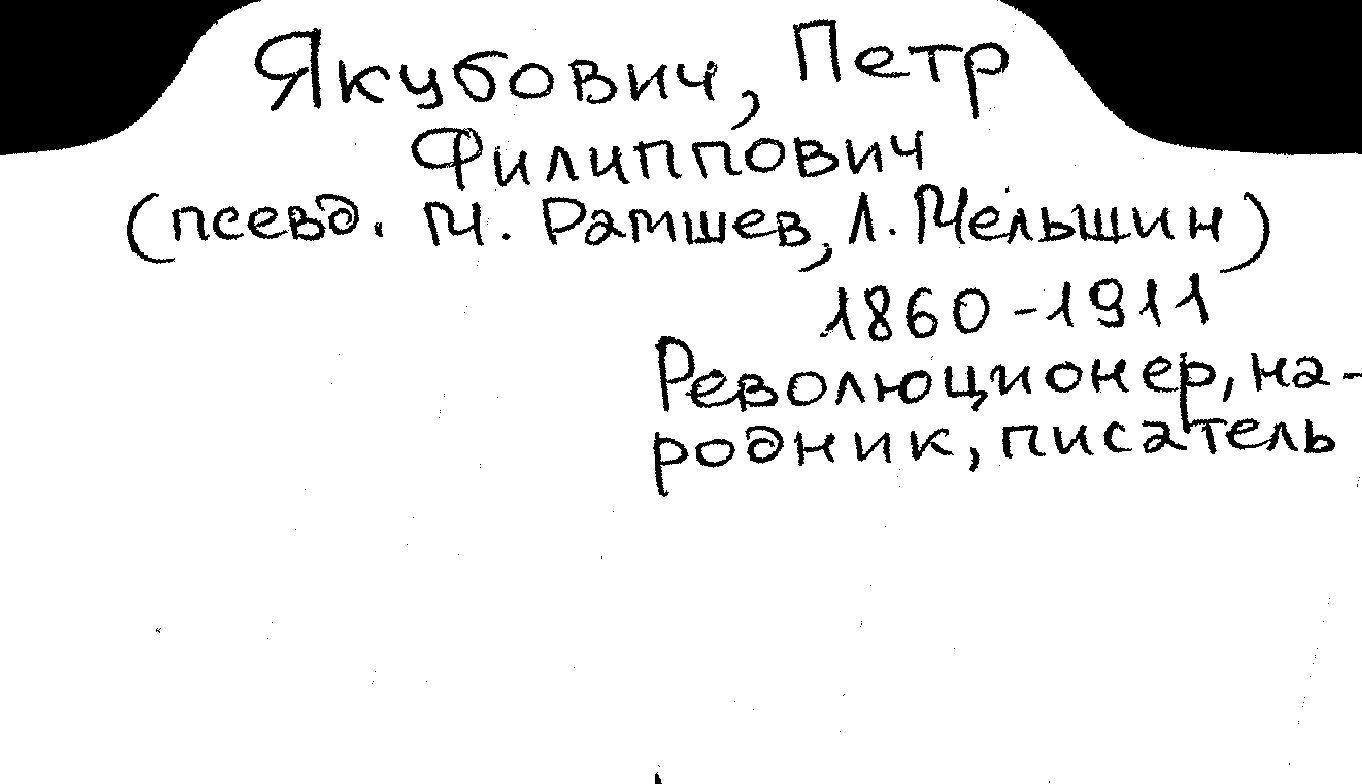 Якубович, Петр
Филиппович
(псевд. М. Рамшев, Л. Мельшин)
1860-1911
Революционер, на-
родник, писатель